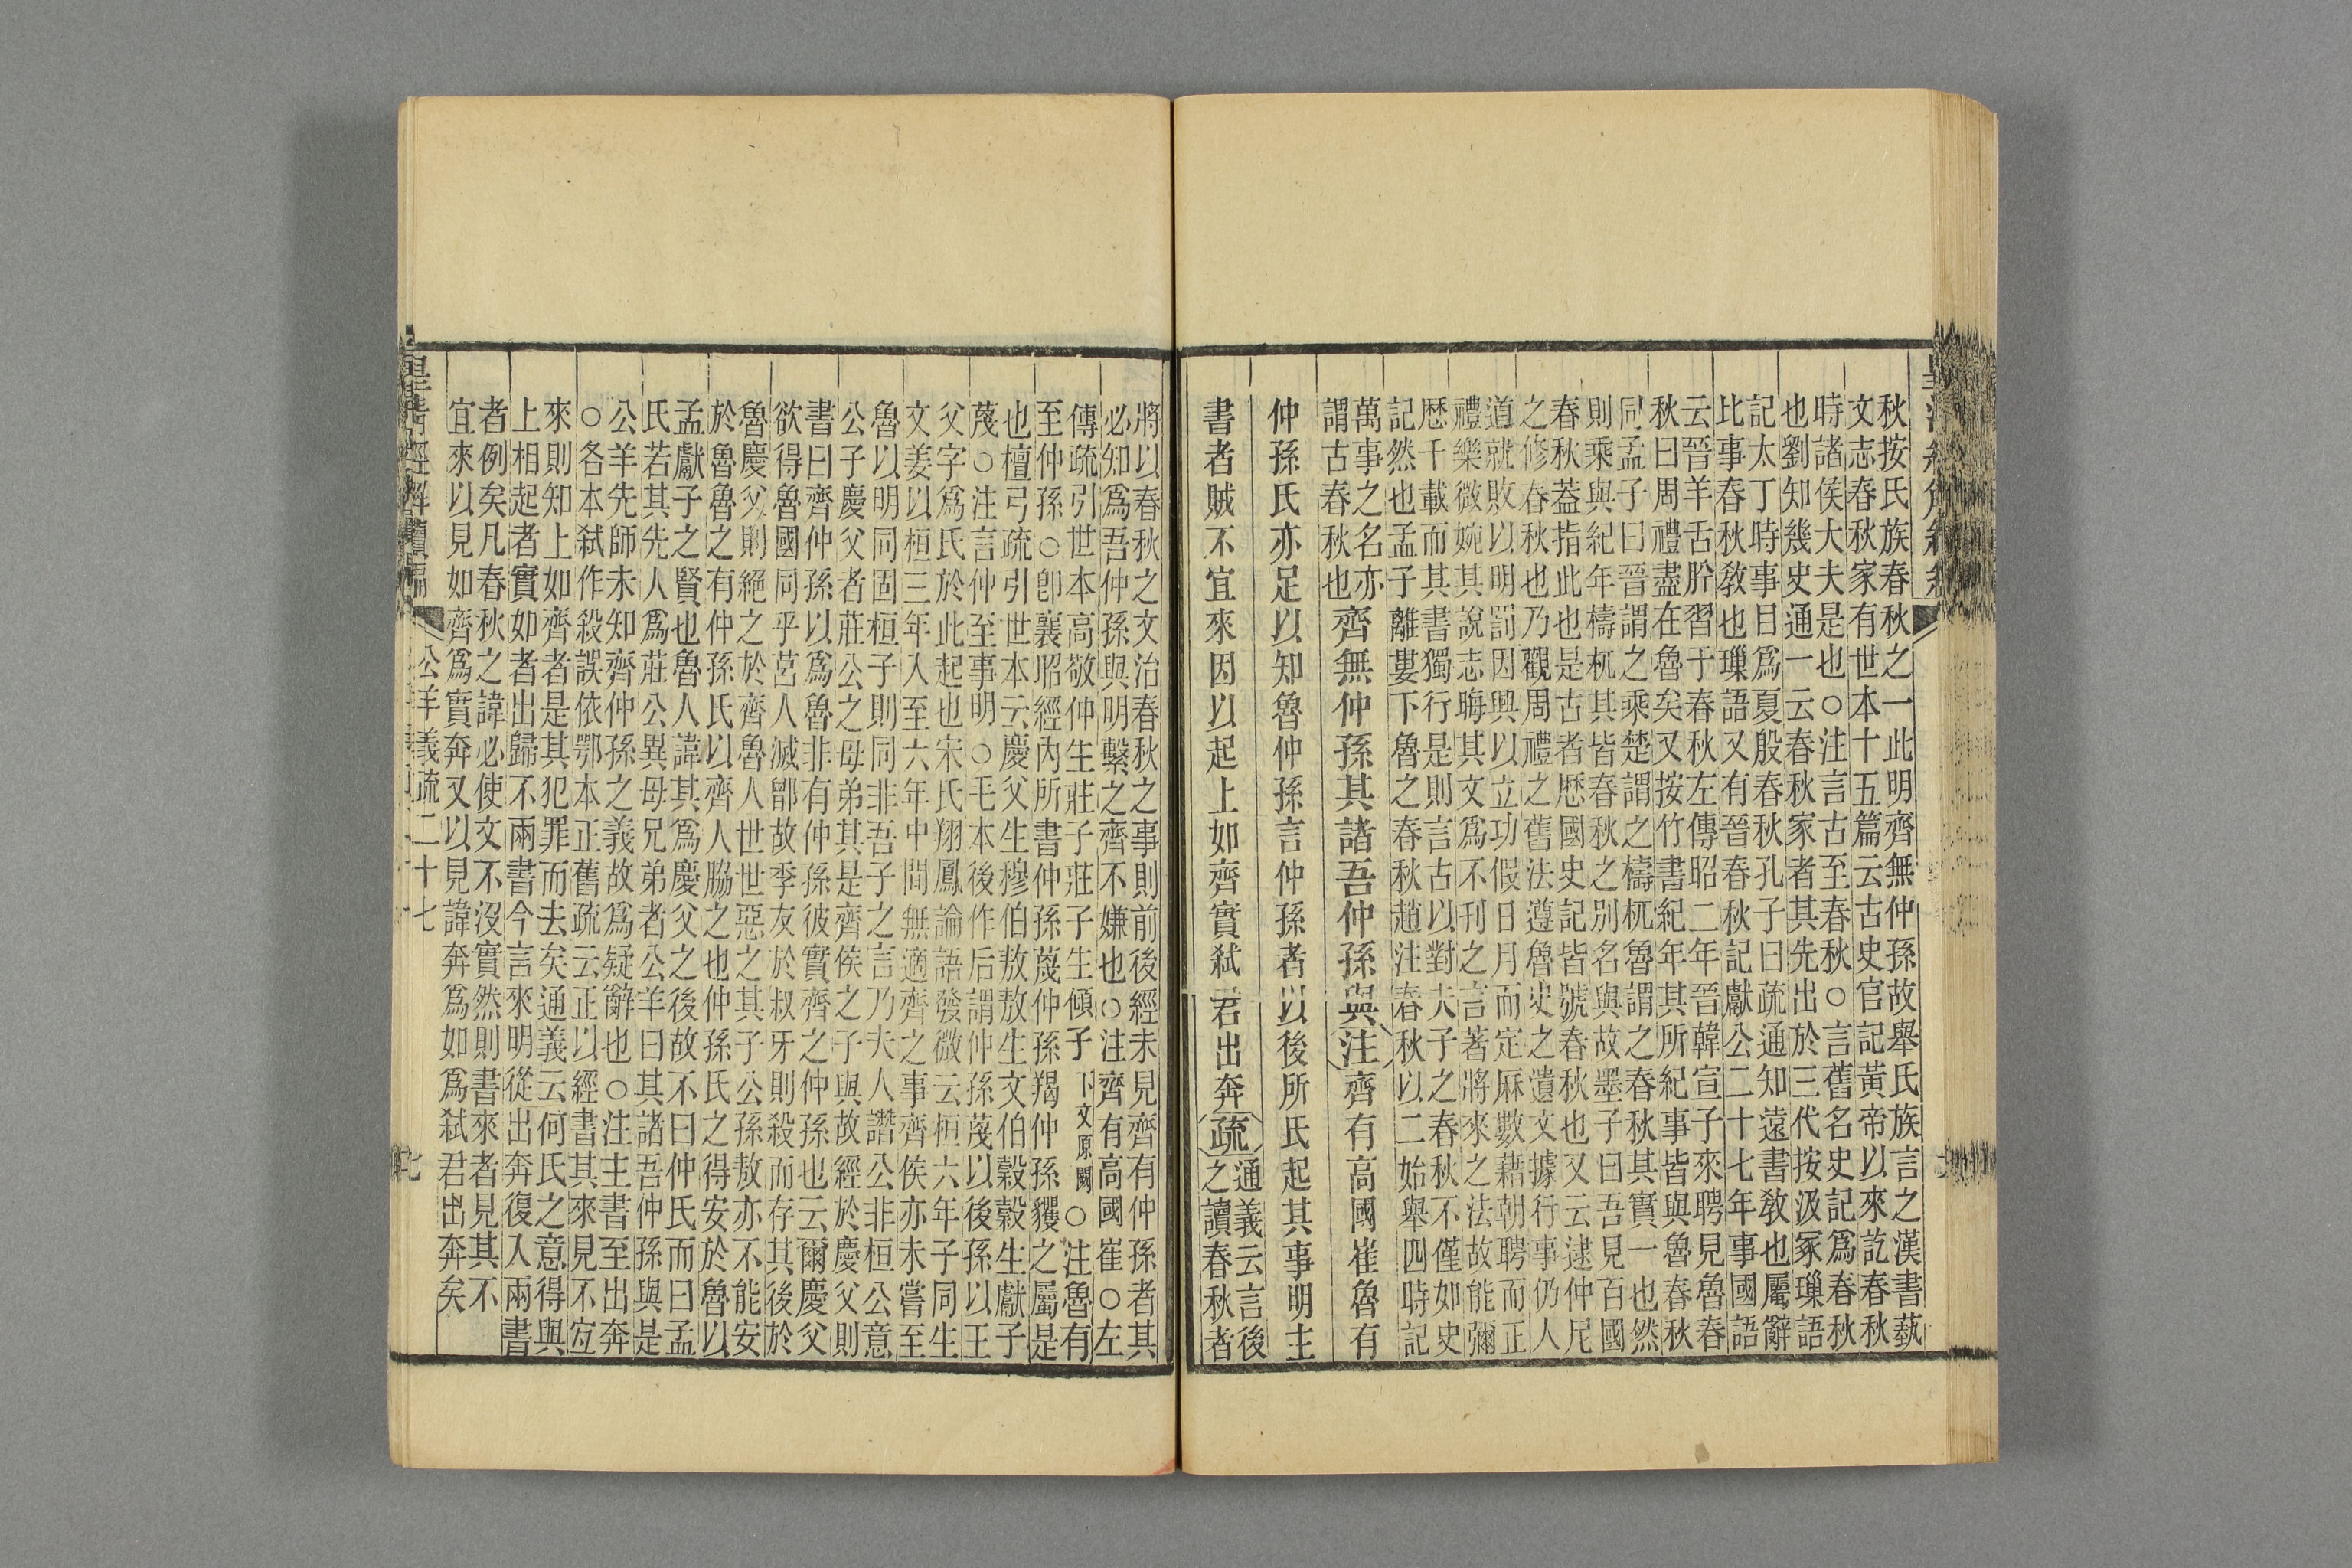 秋按氏族春秋之一此明齊無仲孫故舉氏族言之漢書蓺
文志春秋家有世本十五篇云古史官記黃帝以來訖春秋
時諸侯大夫是也○注言古至春秋○言舊名史記爲春秋
也劉知幾史通一云春秋家者其先出於三代按汲冢璅語
記太丁時事目爲夏殷春秋孔子曰疏通知遠書敎也屬辭
比事春秋敎也璅語又有晉春秋記獻公二十七年事國語
云晉羊舌肸習于春秋左傳昭二年晉韓宣子來聘見魯春
秋曰周禮盡在魯矣又按竹書紀年其所紀事皆與魯春秋
同孟子曰晉謂之乘楚謂之檮杌魯謂之春秋其實一也然
則乘與紀年檮杌其皆春秋之別名與故墨子曰吾見百國
春秋蓋指此也是古者歴國史記皆號春秋也又云逮仲尼
之修春秋也乃觀周禮之舊法遵魯史之遺文據行事仍人
道就敗以明罰因興以立功假日月而定厤數藉朝聘而正
禮樂微婉其說志晦其文爲不刊之言著將來之法故能彌
歴千載而其書獨行是則言古以對夫子之春秋不僅如史
記然也孟子離婁下魯之春秋趙注春秋以二始舉四時記
萬事之名亦
謂古春秋也
齊無仲孫其諸吾仲孫與注齊有高國崔魯有
仲孫氏亦足以知魯仲孫言仲孫者以後所氏起其事明主
書者賊不宜來因以起上如齊實弑君出奔疏
通義云言後
之讀春秋者
將以春秋之文治春秋之事則前後經未見齊有仲孫者其
必知爲吾仲孫與明繫之齊不嫌也○注齊有高國崔○左
傳疏引世本高敬仲生莊子莊子生傾子下文原闕○注魯有
至仲孫○卽襄昭經內所書仲孫蔑仲孫羯仲孫貜之屬是
也檀弓疏引世本云慶父生穆伯敖敖生文伯穀穀生獻子
蔑○注言仲至事明○毛本後作后謂仲孫蔑以後孫以王
父字爲氏於此起也宋氏翔鳳論語發微云桓六年子同生
文姜以桓三年入至六年中間無適齊之事齊侯亦未嘗至
魯以明同固桓子則同非吾子之言乃夫人譖公非桓公意
公子慶父者莊公之母弟其是齊侯之子與故經於慶父則
書曰齊仲孫以爲魯非有仲孫彼實齊之仲孫也云爾慶父
欲得魯國同乎莒人滅鄫故季友於叔牙則殺而存其後於
魯慶父則絕之於齊魯人世世惡之其子公孫敖亦不能安
於魯魯之有仲孫氏以齊人脇之也仲孫氏之得安於魯以
孟獻子之賢也魯人諱其爲慶父之後故不曰仲氏而曰孟
氏若其先人爲莊公異母兄弟者公羊曰其諸吾仲孫與是
公羊先師未知齊仲孫之義故爲疑辭也○注主書至出奔
○各本弑作殺誤依鄂本正舊疏云正以經書其來見不宐
來則知上如齊者是其犯罪而去矣通義云何氏之意得與
上相起者實如者出歸不兩書今言來明從出奔復入兩書
者例矣凡春秋之諱必使文不沒實然則書來者見其不
宜來以見如齊爲實奔又以見諱奔爲如爲弑君出奔矣
皇清經解續編
公羊義疏二十七
七